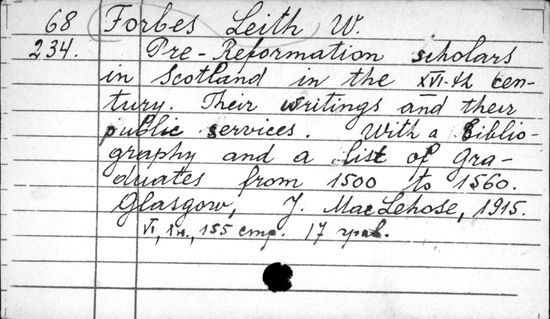 68 Forbes Leith W.
234. Pre-Reformation scholars
in Scotland in the XVI-th cen-
tury. Their writings and their
public services. With a biblio-
graphy and a list of gra-
duates from 1500 to 1560.
Glasgow, J. MacLehose, 1915.
VI, 1н., 155 стр. 17 грав.